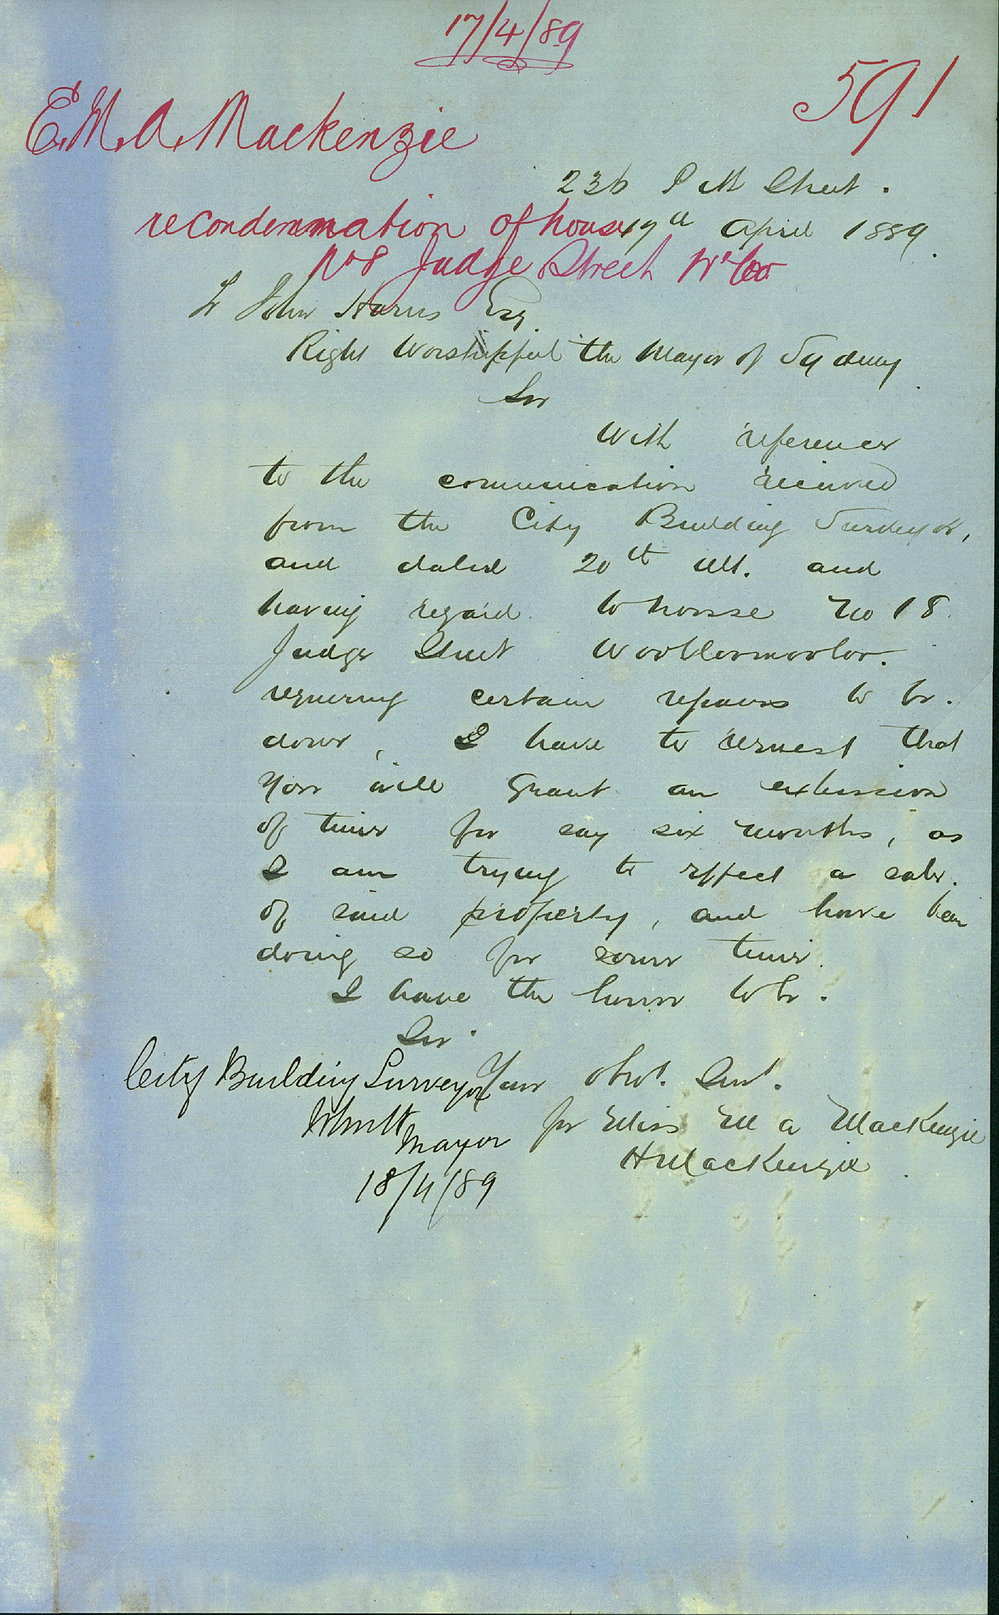 17/4/89
591
E. M. A. Mackenzie
236 P M Street.
re condemnation of house
17th April 1889.
No 8 Judge Street W'loo
To John Harris Esq.
Right Worshipful the Mayor of Sydney
Sir
With reference
to the communication received
from the City Building Surveyor,
and dated 20th ult. and
having regard to house No 18
Judge Street Woolloomooloo.
requiring certain repairs to be.
done, I have to request that
you will grant an extension
of time for say six months, as
I am trying to effect a sale.
of said property, and have been
doing so for some time.
I have the honor to be.
Sir
Your obt. Servt.
for Miss E M A MacKenzie
H MacKenzie
City Building Surveyor
Mayor
18/4/89